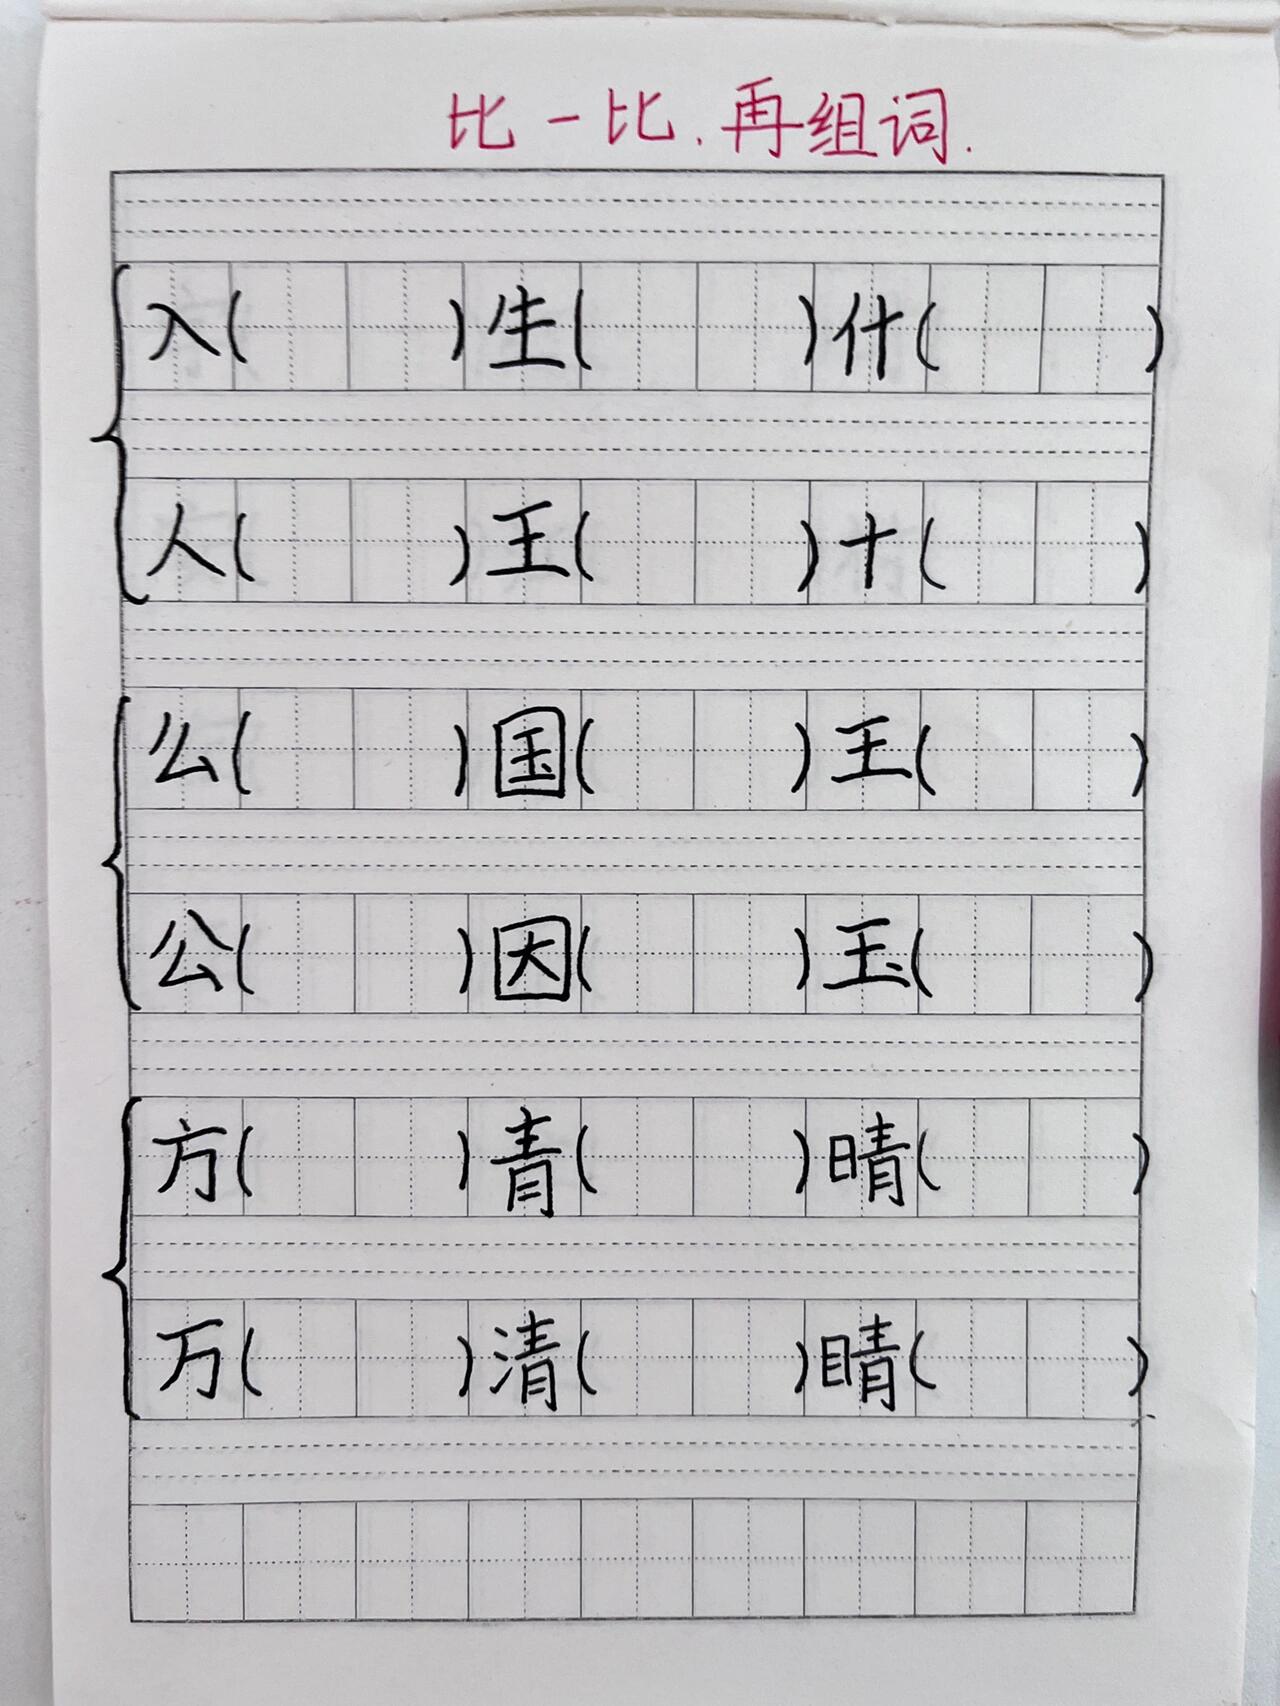 比一比.再组词.
入(  )生(  )什(  )
人(  )王(  )十(  )
么(  )国(  )王(  )
公(  )因(  )玉(  )
方(  )青(  )晴(  )
万(  )清(  )睛(  )